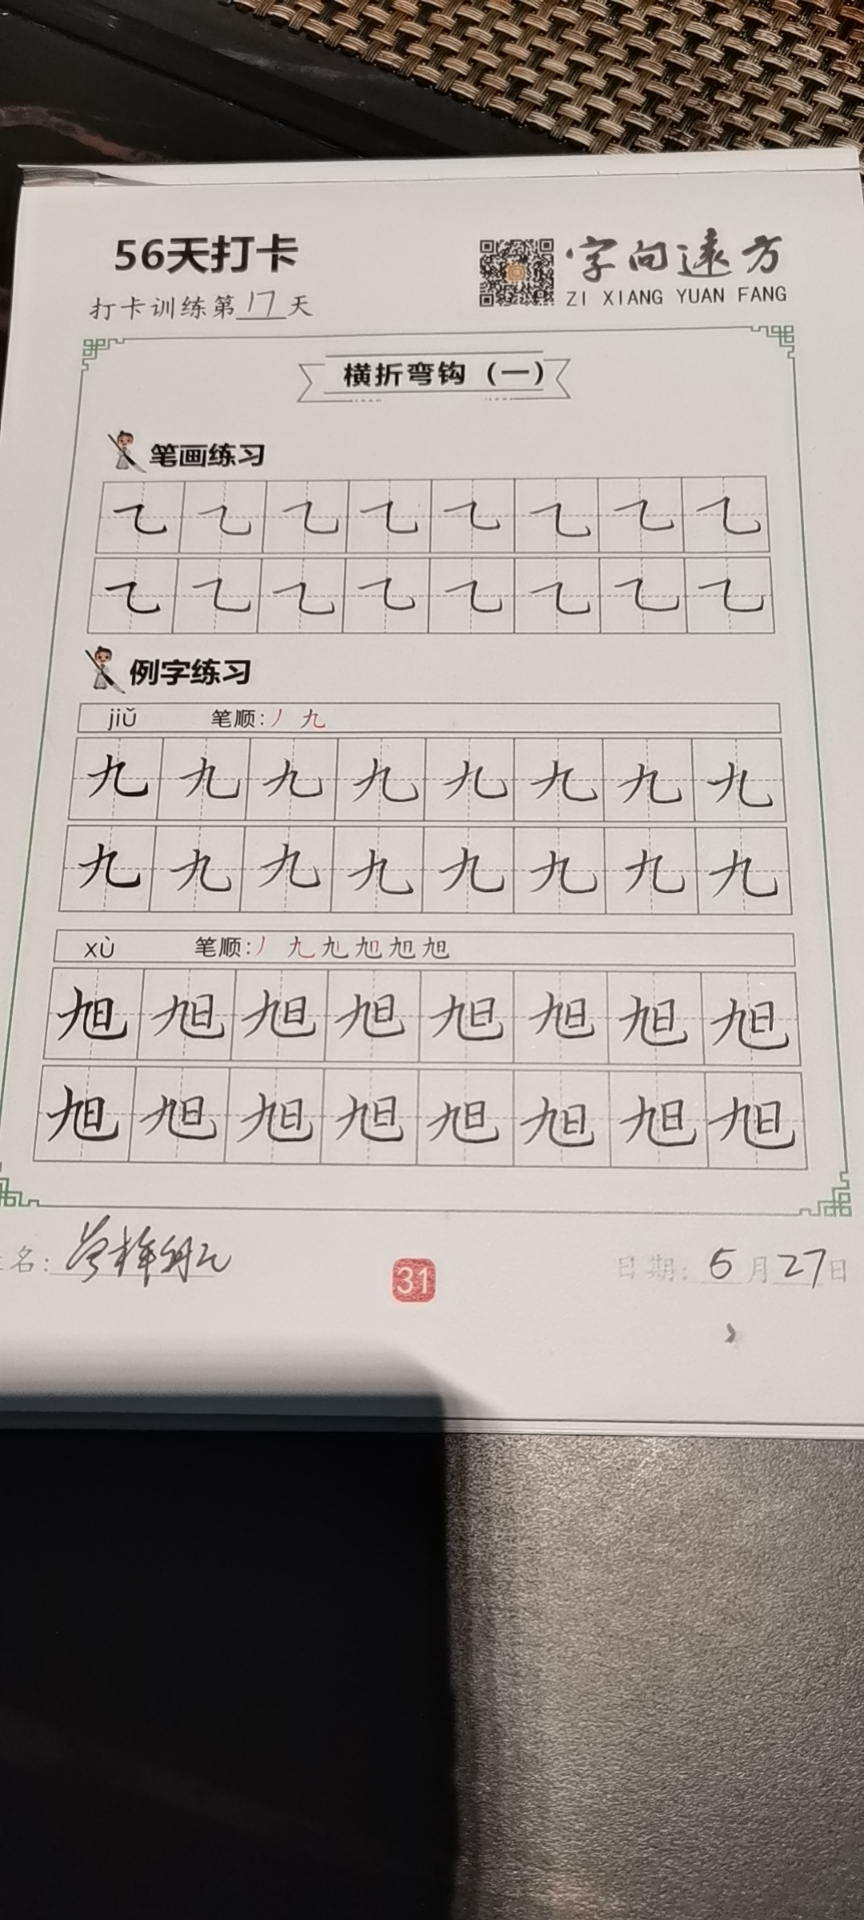 56天打卡
字向遠方
打卡训练第17天
ZI XIANG YUAN FANG
横折弯钩（一）
笔画练习
㇈ ㇈ ㇈ ㇈ ㇈ ㇈ ㇈ ㇈
㇈ ㇈ ㇈ ㇈ ㇈ ㇈ ㇈ ㇈
例字练习
jiǔ 笔顺:丿 九
九 九 九 九 九 九 九 九
九 九 九 九 九 九 九 九
xù 笔顺:丿 九 旭 旭 旭 旭
旭 旭 旭 旭 旭 旭 旭 旭
旭 旭 旭 旭 旭 旭 旭 旭
名:
31
日期: 5月27日